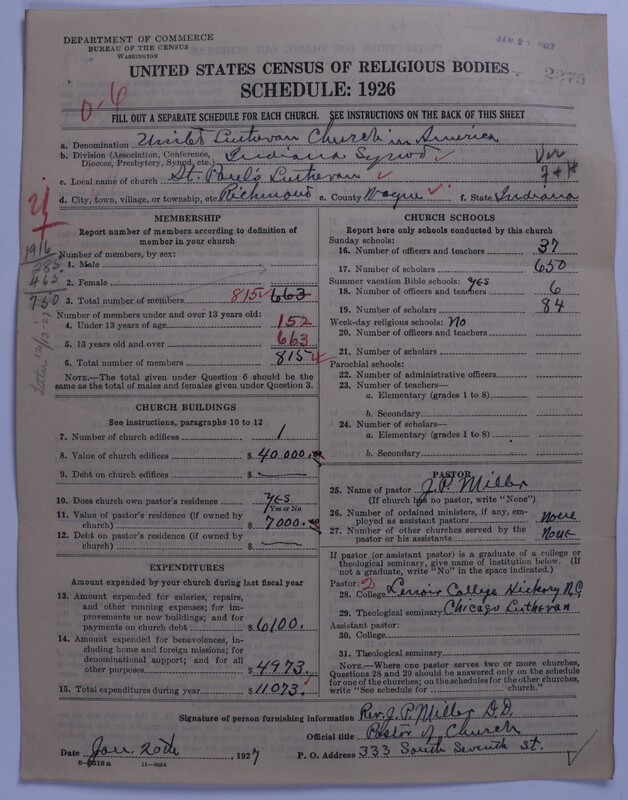 DEPARTMENT OF COMMERCE
BUREAU OF THE CENSUS
WASHINGTON
JAN 2
2275
UNITED STATES CENSUS OF RELIGIOUS BODIES
SCHEDULE: 1926
0-6
FILL OUT A SEPARATE SCHEDULE FOR EACH CHURCH. SEE INSTRUCTIONS ON THE BACK OF THIS SHEET
a. Denomination United Lutheran Church in America
b. Division (Association, Conference, Diocese, Presbytery, Synod, etc.) Indiana Synod
c. Local name of church St. Paul's Lutheran
d. City, town, village, or township, etc. Richmond e. County Wayne f. State Indiana
MEMBERSHIP
Report number of members according to definition of
member in your church
1916
285
465
750
Number of members, by sex:
1. Male
2. Female
3. Total number of members 815 663
Number of members under and over 13 years old:
4. Under 13 years of age 152
5. 13 years old and over 663
6. Total number of members 815
NOTE.—The total given under Question 6 should be the
same as the total of males and females given under Question 3.
CHURCH BUILDINGS
See instructions, paragraphs 10 to 12
7. Number of church edifices 1
8. Value of church edifices $ 40,000.00
9. Debt on church edifices $ —
10. Does church own pastor's residence yes
Yes or No
11. Value of pastor's residence (if owned by
church) $ 7000.00
12. Debt on pastor's residence (if owned by
church) $ —
EXPENDITURES
Amount expended by your church during last fiscal year
13. Amount expended for salaries, repairs,
and other running expenses; for im-
provements or new buildings; and for
payments on church debt $ 6100.
14. Amount expended for benevolences, in-
cluding home and foreign missions; for
denominational support; and for all
other purposes $ 4973.
15. Total expenditures during year $ 11073.
CHURCH SCHOOLS
Report here only schools conducted by this church
Sunday schools:
16. Number of officers and teachers 37
17. Number of scholars 650
Summer vacation Bible schools: yes
18. Number of officers and teachers 6
19. Number of scholars 84
Week-day religious schools: No
20. Number of officers and teachers
21. Number of scholars
Parochial schools:
22. Number of administrative officers
23. Number of teachers—
a. Elementary (grades 1 to 8)
b. Secondary
24. Number of scholars—
a. Elementary (grades 1 to 8)
b. Secondary
PASTOR
25. Name of pastor J. P. Miller
(If church has no pastor, write "None")
26. Number of ordained ministers, if any, em-
ployed as assistant pastors none
27. Number of other churches served by the
pastor or his assistants None
If pastor (or assistant pastor) is a graduate of a college or
theological seminary, give name of institution below. (If
not a graduate, write "No" in the space indicated.)
Pastor: 2
28. College Lenoir College Hickory N.C.
29. Theological seminary Chicago Lutheran
Assistant pastor:
30. College
31. Theological seminary
NOTE.—Where one pastor serves two or more churches,
Questions 28 and 29 should be answered only on the schedule
for one of the churches; on the schedules for the other churches,
write "See schedule for church."
Signature of person furnishing information Rev. J. P. Miller D.D.
Official title Pastor of Church
Date Jan. 20th, 1927 P. O. Address 333 South Seventh St.
11—9324